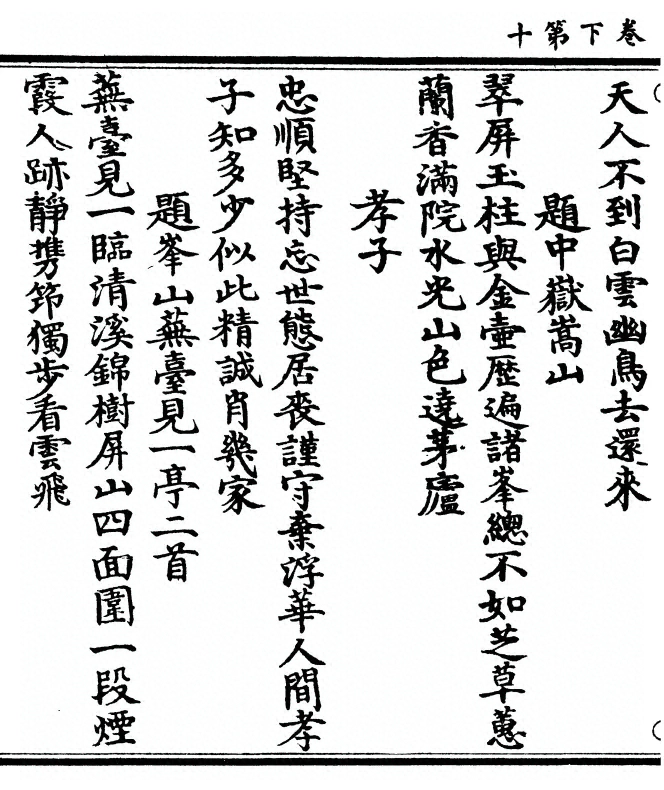 卷下第十
天人不到白雲幽鳥去還來
題中嶽嵩山
翠屏玉柱與金壷歷遍諸峯總不如芝草蕙
蘭香滿院水光山色遶茅廬
孝子
忠順堅持忘世態居喪謹守棄浮華人間孝
子知多少似此精誠肖幾家
題峯山蕪臺見一亭二首
蕪臺見一臨清溪錦樹屏山四面圍一段煙
霞人跡靜携筇獨步看雲飛